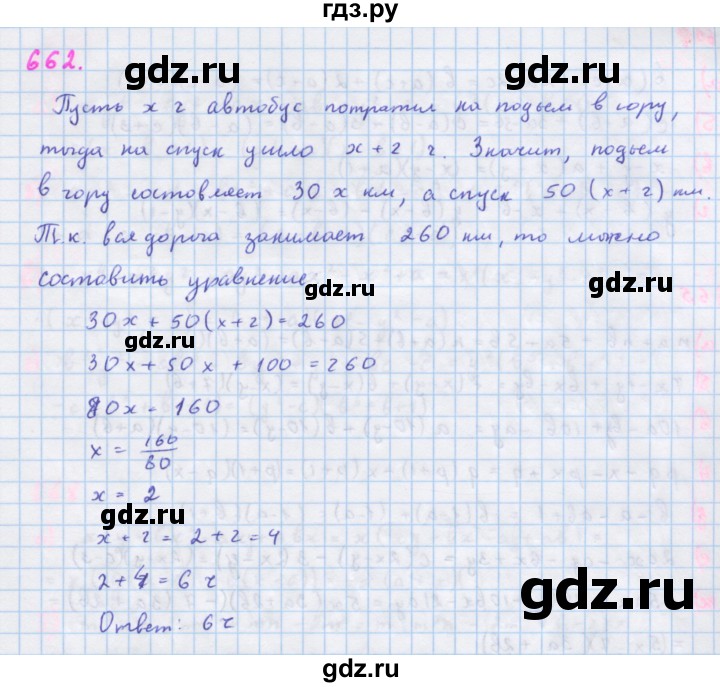 гдз.ру
662.
gdz.ru
gdz.ru
Пусть х ч автобус потратил на подъем в гору,
тогда на спуск ушло х + 2 ч. Значит, подъем
в гору составляет 30 х км, а спуск 50 (х + 2) км.
Т.к. вся дорога занимает 260 км, то можно
составить уравнение:
gdz.ru
gdz.ru
30х + 50(х + 2) = 260
gdz.ru
30х + 50х + 100 = 260
80х = 160
х = 160/80
х = 2
х + 2 = 2 + 2 = 4
2 + 4 = 6 ч
gdz.ru
Ответ: 6 ч
gdz.ru